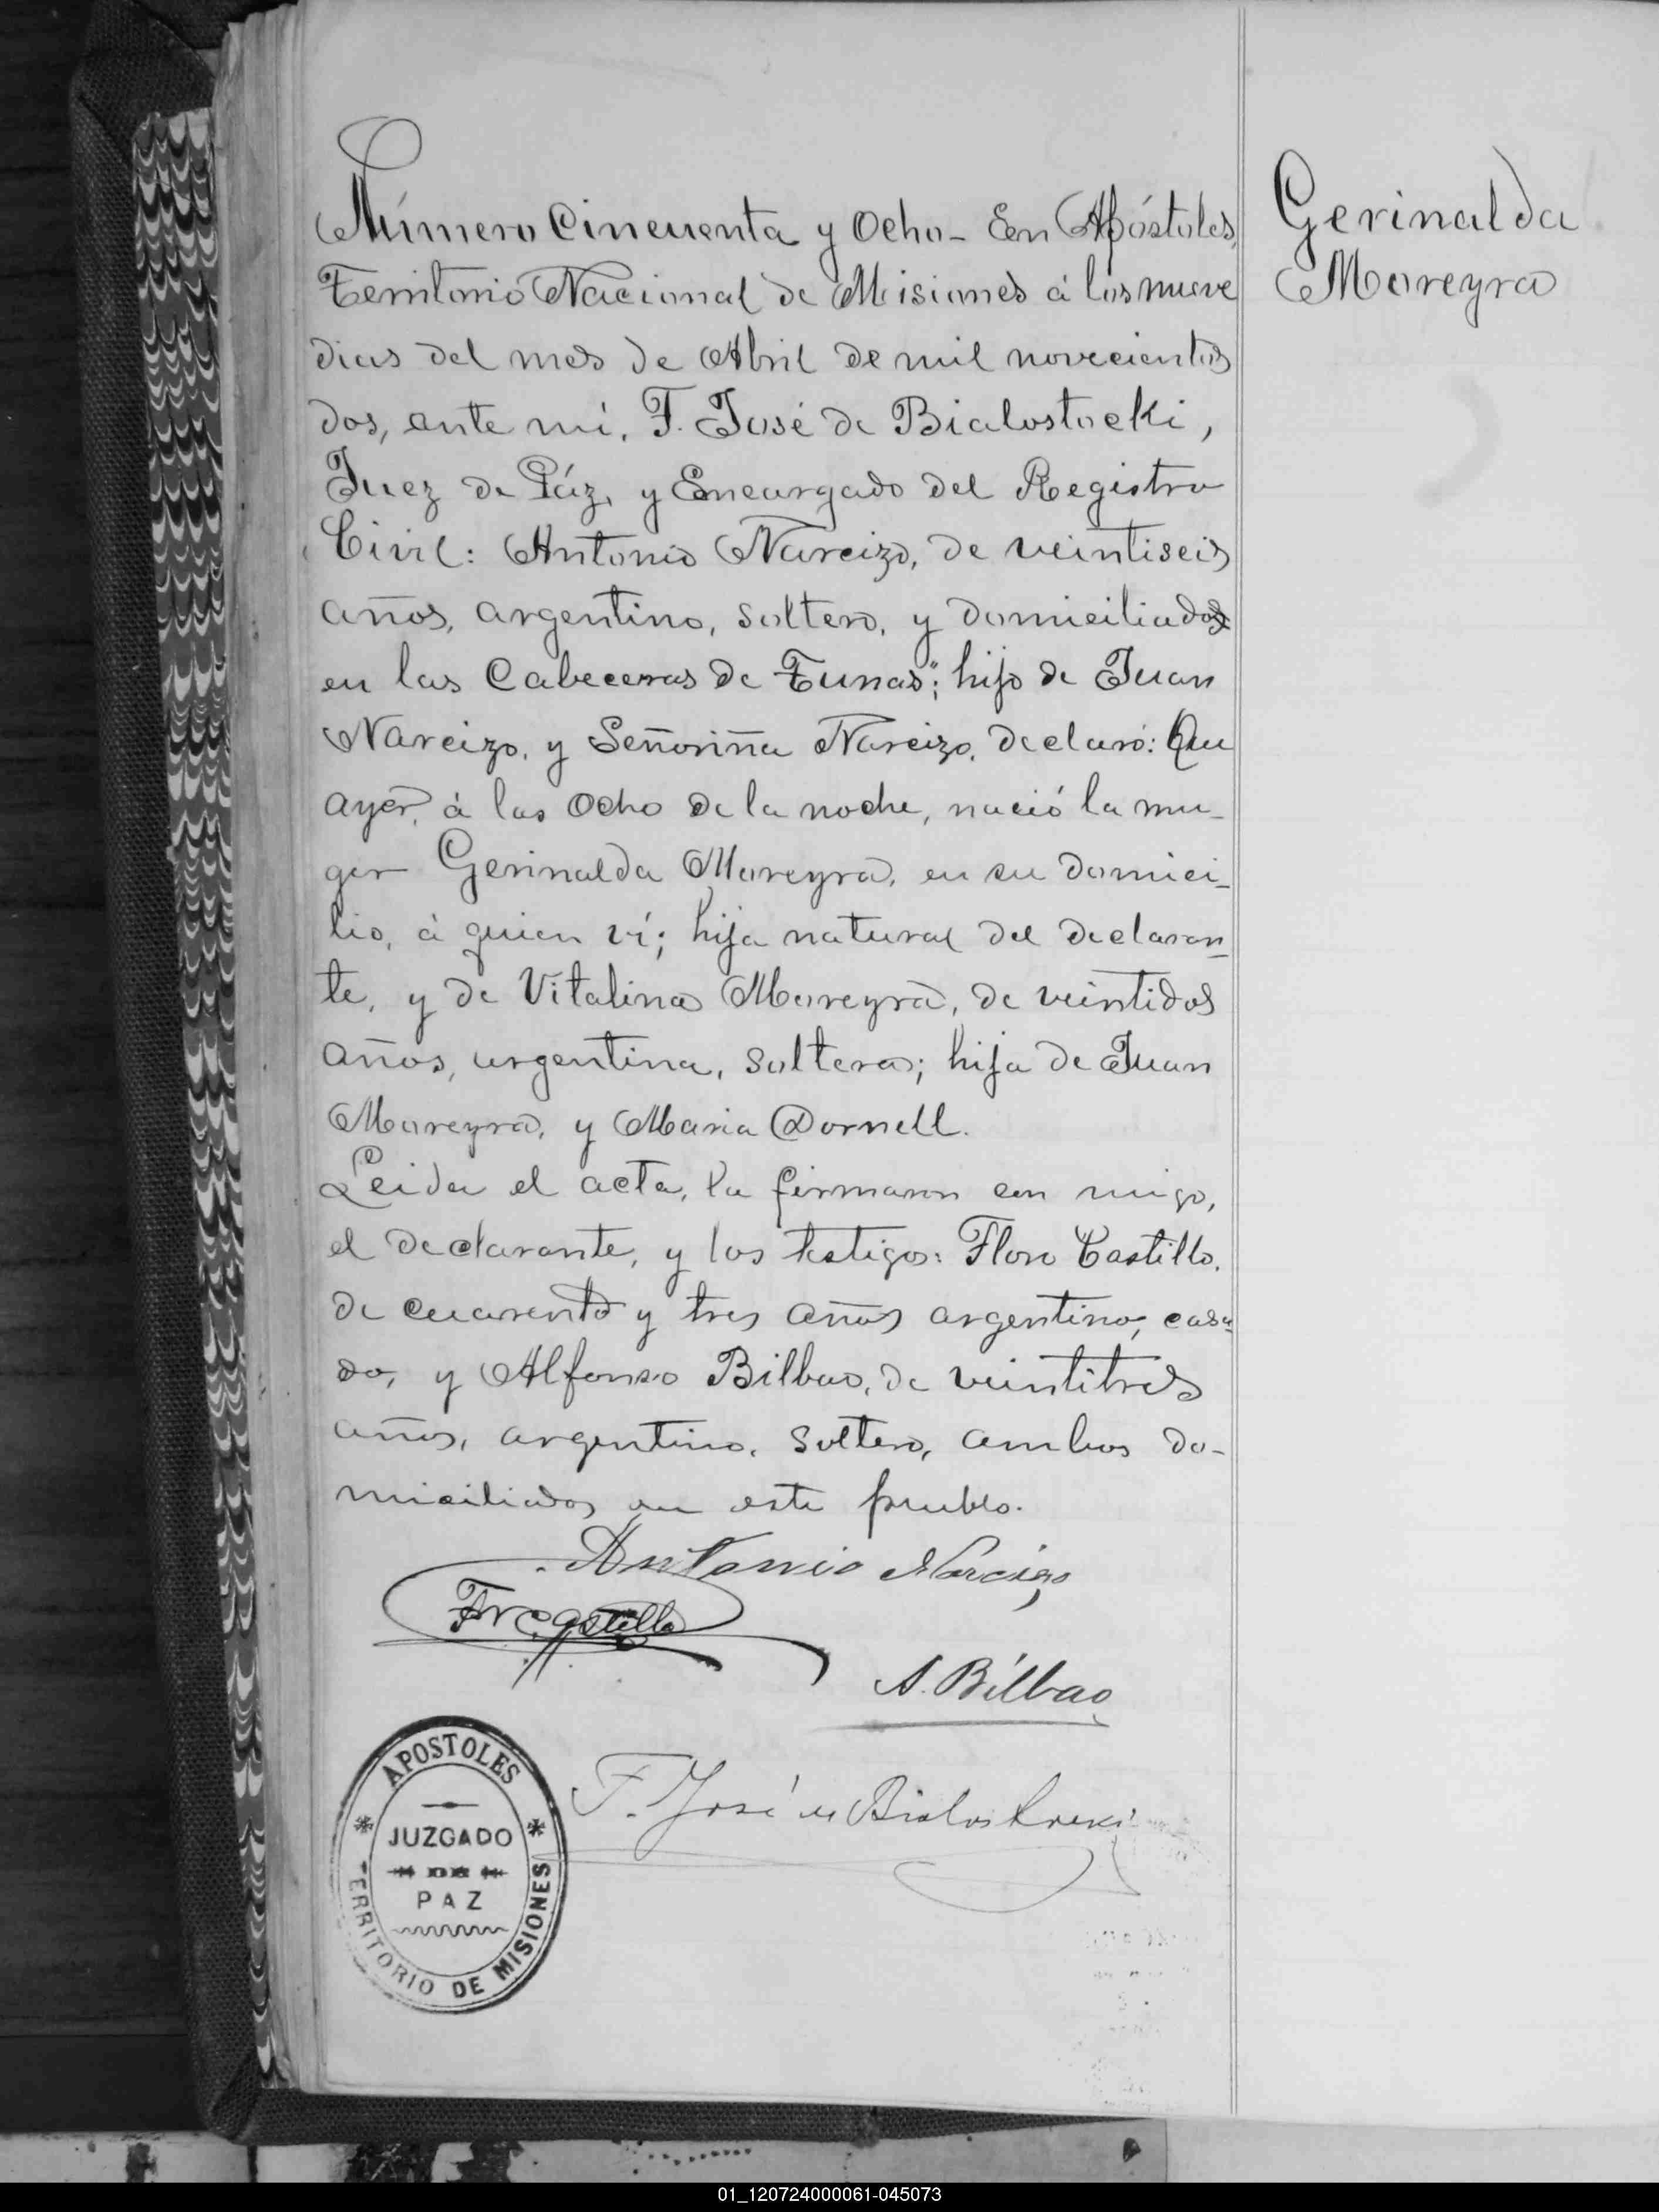 Número Cincuenta y Ocho - En Apóstoles,
Territorio Nacional de Misiones á los nueve
dias del mes de Abril de mil novecientos
dos, ante mí, F. José de Bialostocki,
Juez de Páz, y Encargado del Registro
Civil: Antonio Narcizo, de veintiseis
años, argentino, soltero, y domiciliado
en las Cabeceras de Tunas"; hijo de Juan
Narcizo, y Señoriña Narcizo, declaró: Que
ayer, á las ocho de la noche, nació la mu-
ger Gerinalda Moreyra, en su domici-
lio, á quien ví; hija natural del declaran-
te, y de Vitalina Moreyra, de veintidos
años, argentina, soltera; hija de Juan
Moreyra, y Maria Dornell.
Leida el acta, la firmaron con migo,
el declarante, y los testigos: Floro Castillo,
de cuarenta y tres años argentino, casa
do, y Alfonso Bilbao, de veintitres
años, argentino, soltero, ambos do-
miciliados en este pueblo.
Antonio Narcizo
Castillo
A. Bilbao
F. José de Bialostocki
Gerinalda
Moreyra
APOSTOLES
JUZGADO
DE
PAZ
TERRITORIO DE MISIONES
01_120724000061-045073